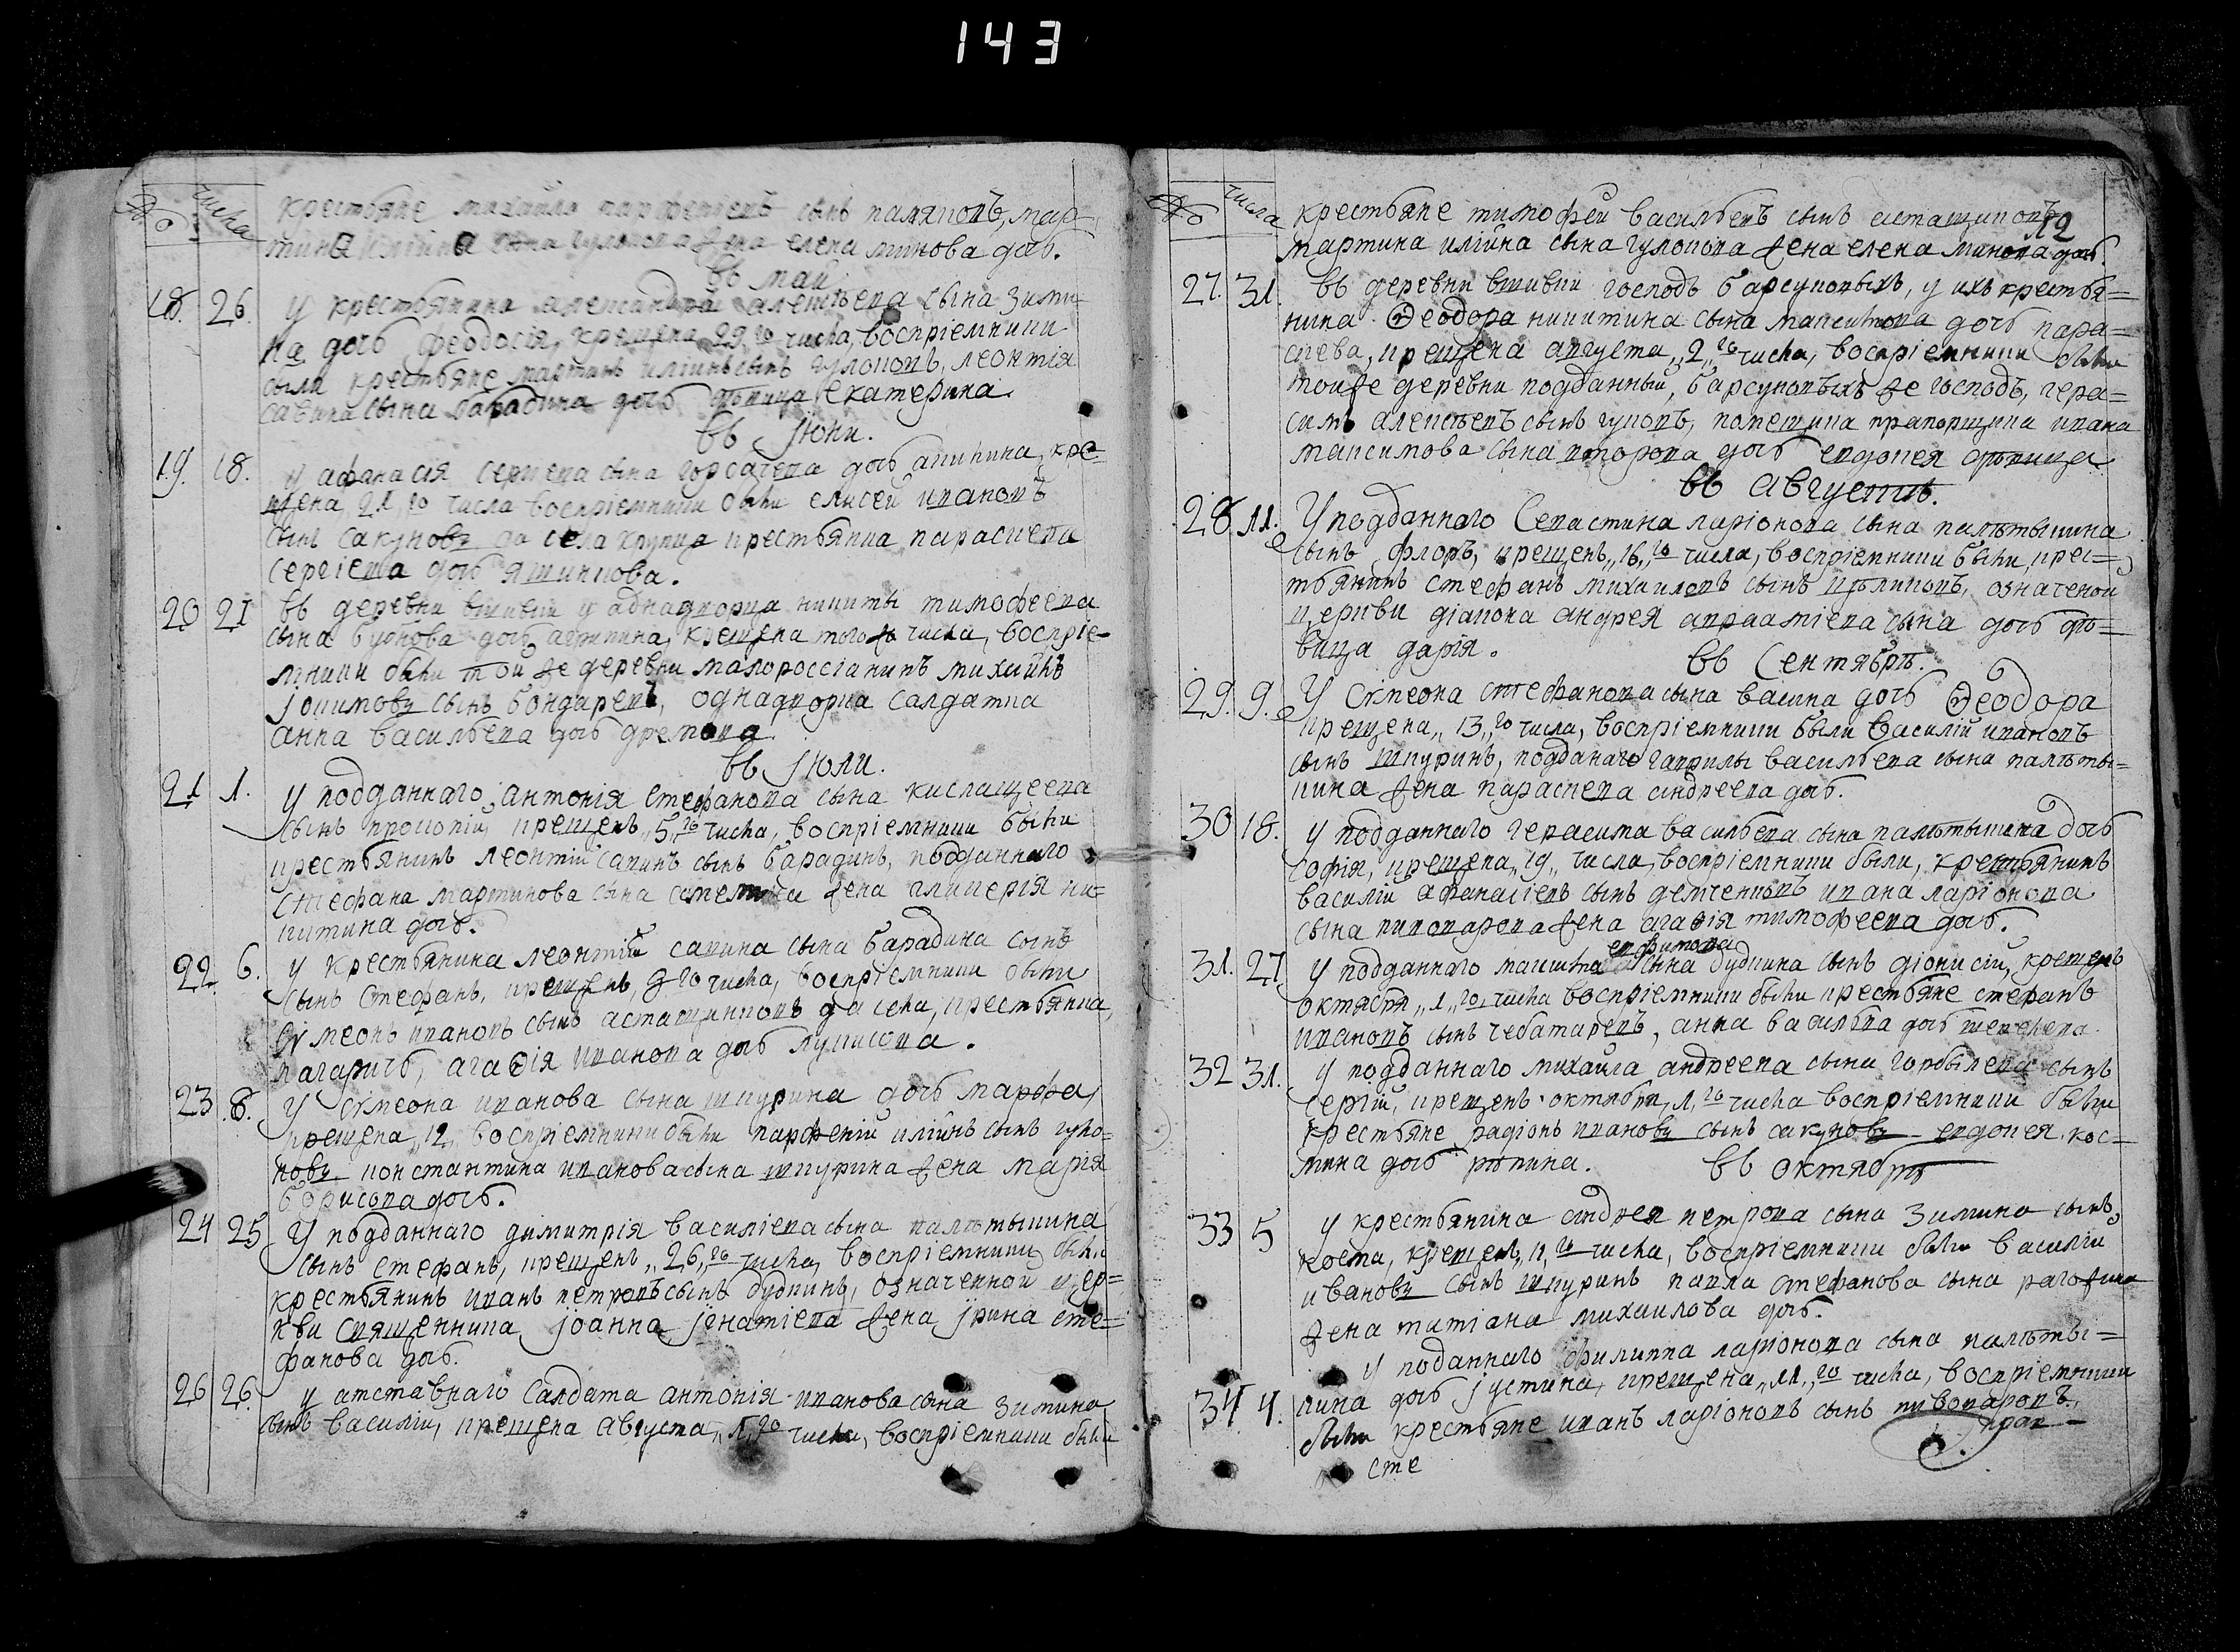 143
№ числа
крестьяне михаила парфениевъ сынъ паляповъ, мар
тина илїина сына гулокова жена елена минова доч.
въ маи
18. 26. У крестьянина александра алексѣева сына Зими
на дочь феодосїя, крещена 29 го числа, воспріемники
были крестьяне мартинъ илїинъ сынъ гулоковъ, леонтїя
савина сына барадина дочь дѣвица екатерина.
въ Июни.
19. 18. у афанасїя сергиева сына горбачева дочь акилина, кре=
щена, 21, го числа воспріемники были елисей ивановъ
сынъ сакуновъ да села крупца крестьянка параскева
сергїева дочь яшинкова.
20 21 въ деревни вшивки у аднадворца никиты тимофеева
сына буонова дочь агрипина, крещена того ж числа, воспріе-
мники были той же деревни малороссїанинъ михайла
їоакимовъ сынъ бондаревъ, однадворка салдатка
анна васильева дочь
въ Июли.
21 1. у подданнаго антонїя стефанова сына кислащеева
сынъ прокопїй, крещенъ, 5, го числа, воспріемники были
крестьянинъ леонтїй савинъ сынъ барадинъ, подданнаго
стефана мартинова сына жена гликерїя ни=
китина доч.
22 6. у крестьянина леонтїя савина сына барадина сынъ
сынъ стефанъ, крещенъ, 9 го числа, воспріемники были
сѵмеонъ ивановъ сынъ асташинковъ да села, крестьянка,
пагаричь, агаѳїя иванова дочь лукисова.
23 8. У сѵмеона иванова сына шкурина дочь марфа,
крещена, 12, воспріемники были парфенїй илїинъ сынъ гуло=
ковъ константина иванова сына шкурина жена марїя
борисова доч.
24 25 У подданнаго димитрїя василїева сына калѣтышина
сынъ стефанъ, крещенъ, 26, го числа, воспріемники были
крестьянинъ иванъ петровъ сынъ будкинъ, означенной цер=
кви священника їоанна їгнатїева жена їрина сте=
фанова доч.
26 26. у атставнаго Салдата антонїя иванова сына зимина
сынъ василїи, крещена августа, 1, го числа, воспріемники были
№ числа
крестьяне тимофеи васильевъ сынъ асташиковъ,
12
мартина илїина сына гулокова жена елена минова доч.
27. 31. въ деревни вшивки господъ барсуковыхъ, у ихъ крестья=
нина Ѳеодора никитина сына максимова дочь пара=
скева, крещена августа, 2, го числа, воспріемники были
тоиже деревни подданный, барсуковыхъ же господъ, гера=
симъ алексѣевъ сынъ гуковъ, помещика прапорщика ивана
максимова сына второва дочь евдокея дѣвица
въ Августѣ.
28. 11. У подданнаго Севастина ларїонова сына калѣтышина
сынъ флоръ, крещенъ, 16, го числа, воспріемники были, крес=
тьянинъ стефанъ михаиловъ сынъ цѣликовъ, означеной
церкви дїакона андрея авраамїева сына дочь дѣ=
вица дарїя.
въ Сентябрѣ.
29. 9. У Сѵмеона стефанова сына васина дочь Ѳеодора
крещена, 13, го числа, воспріемники были Василїй ивановъ
сынъ шкуринъ, подданаго гаврилы васильева сына калѣты=
шина жена параскева андреева доч.
30 18. у подданнаго герасима васильева сына калѣтышина дочь
софїя, крещена, 19, числа, воспріемники были, крестьянинъ
василїи афанасїевъ сынъ демченковъ ивана ларїонова
сына пивоварова жена агаѳїя тимофеева доч.
31. 27 у подданнаго максима евфимова сына будкина сынъ дїонисїй, крещенъ
октября, 1, го, числа воспріемники были крестьяне стефанъ
ивановъ сынъ чебатаревъ, анна васильева дочь
32 31. у подданнаго михайла андреева сына горбылева сынъ
сергїй, крещенъ октября, 1, го числа воспріемники были
крестьяне радїонъ ивановъ сынъ сакуновъ евдокея, кос=
тина дочь рѣпина. въ октябрѣ
33 5 у крестьянина андрея петрова сына Зимина сынъ,
косма, крещенъ, 11, го числа, воспріемники были василїи
ивановъ сынъ шкуринъ павла стефанова сына рагожина
жена татїана михаилова доч.
34 4. у поданнаго филиппа ларїонова сына калѣты=
шина дочь їустина, крещена, 11, го числа, воспріемники
были крестьяне иванъ ларїоновъ сынъ пивоваровъ,
сте